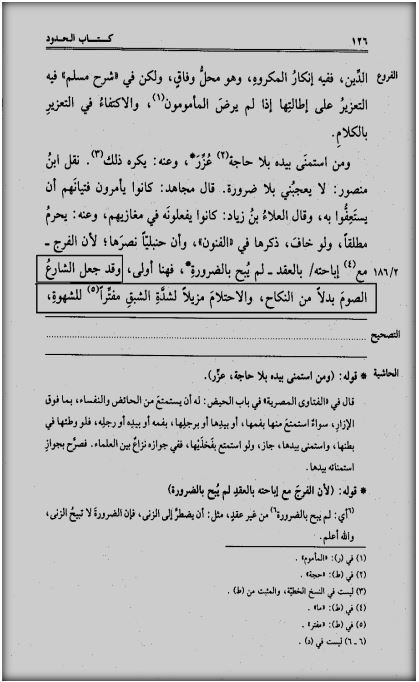 ١٢٦ كتاب الحدود
الفروع الدِّين، ففيه إنكارُ المكروهِ، وهو محلُّ وفاقٍ، ولكن في «شرح مسلم» فيه
التعزيرُ على إطالتِها إذا لم يرضَ المأمومون(١)، والاكتفاءُ في التعزيرِ
بالكلامِ.
ومن استمنَى بيده بلا حاجة(٢) عُزِّرَ*، وعنه: يكره ذلك(٣). نقل ابنُ
منصور: لا يعجبُني بلا ضرورة. قال مجاهد: كانوا يأمرون فتيانَهم أن
يستَعِفُّوا به، وقال العلاءُ بنُ زياد: كانوا يفعلونَه في مغازيهم، وعنه: يحرمُ
مطلقاً، ولو خافَ، ذكرها في «الفنون»، وأن حنبليًّا نصرَها؛ لأن الفرج ـ
١٨٦/٢ مع(٤) إباحته/ بالعقد ـ لم يُبح بالضرورةِ*، فهنا أولى، وقد جعل الشارعُ
الصومَ بدلاً من النكاح، والاحتلامَ مزيلاً لشدَّةِ الشبقِ مفتِّراً(٥) للشهوةِ،
التصحيح
الحاشية * قوله: (ومن استمنى بيده بلا حاجة، عزِّر).
قال في «الفتاوى المصرية» في باب الحيض: له أن يستمتعَ من الحائض والنفساء، بما فوق
الإزار، سواءٌ استمتعَ منها بفمها، أو بيدِها أو برجلِها، بفمه أو بيدِه أو رجلِه، فلو وطئها في
بطنها، واستمنى بيدها، جاز، ولو استمتع بفَخذَيْها، ففي جوازه نزاعٌ بين العلماء. فصرَّح بجوازِ
استمنائه بيدها.
* قوله: (لأن الفرجَ مع إباحته بالعقدِ لم يُبح بالضرورة)
(٦أي: لم يبح بالضرورة٦) من غير عقدٍ، مثل: أن يضطرَّ إلى الزنى، فإن الضرورةَ لا تبيحُ الزنى،
والله أعلم.
(١) في (ر): «المأموم» .
(٢) في (ط): «حجة» .
(٣) ليست في النسخ الخطيَّة، والمثبت من (ط) .
(٤) في (ط): «ما» .
(٥) في (ط): «مفتر» .
(٦ ـ ٦) ليست في (د) .